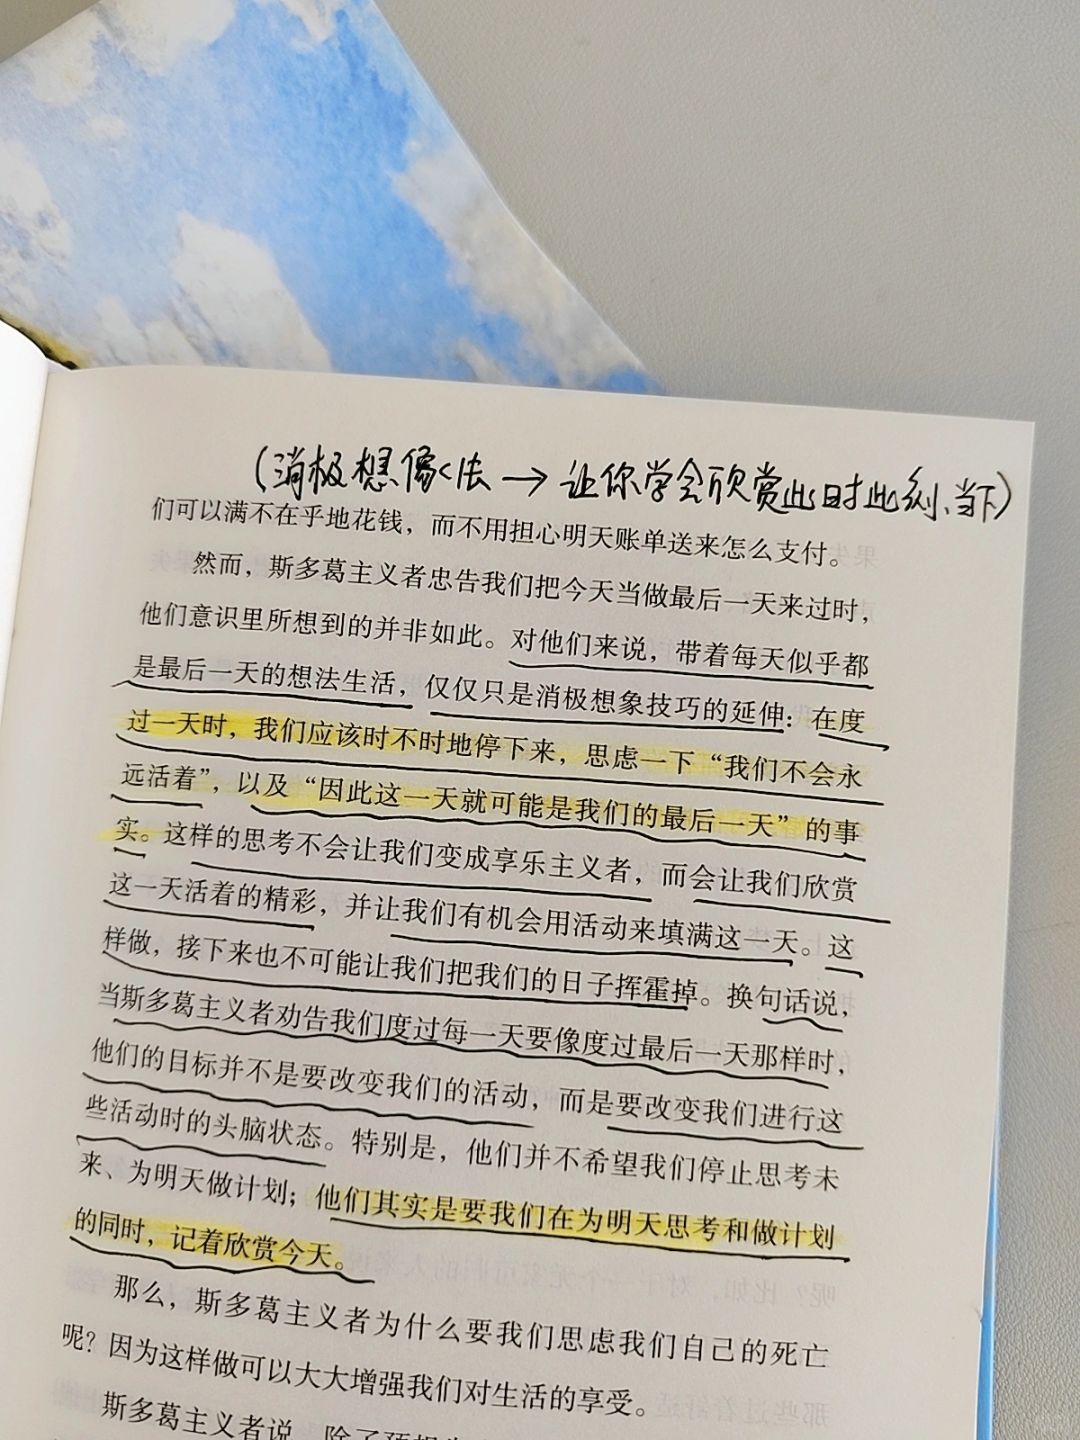 (消极想像法→让你学会欣赏此时此刻、当下)
们可以满不在乎地花钱，而不用担心明天账单送来怎么支付。
然而，斯多葛主义者忠告我们把今天当做最后一天来过时，
他们意识里所想到的并非如此。对他们来说，带着每天似乎都
是最后一天的想法生活，仅仅只是消极想象技巧的延伸：在度
过一天时，我们应该时不时地停下来，思虑一下“我们不会永
远活着”，以及“因此这一天就可能是我们的最后一天”的事
实。这样的思考不会让我们变成享乐主义者，而会让我们欣赏
这一天活着的精彩，并让我们有机会用活动来填满这一天。这
样做，接下来也不可能让我们把我们的日子挥霍掉。换句话说，
当斯多葛主义者劝告我们度过每一天要像度过最后一天那样时，
他们的目标并不是要改变我们的活动，而是要改变我们进行这
些活动时的头脑状态。特别是，他们并不希望我们停止思考未
来、为明天做计划；他们其实是要我们在为明天思考和做计划
的同时，记着欣赏今天。
那么，斯多葛主义者为什么要我们思虑我们自己的死亡
呢？因为这样做可以大大增强我们对生活的享受。
斯多葛主义者说，除了预想